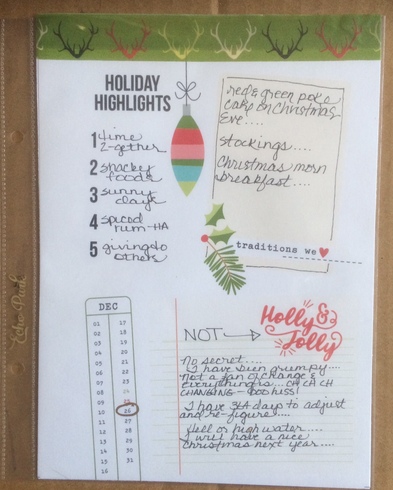 HOLIDAY
HIGHLIGHTS
1 time
2-gether
2 snackey
foods
3 sunny
days
4 spiced
rum-HA
5 giving to
others
red & green poke
cake on Christmas
Eve....
stockings....
Christmas morn
breakfast....
traditions we
Echo Park
DEC
01 17
02 18
03 19
04 20
05 21
06 22
07 23
08 24
09 25
10 26
11 27
12 28
13 29
14 30
15 31
16
Holly &
Jolly
NOT
No secret....
I have been grumpy....
Not a fan of change &
everything is... CH CH CH
CHANGING - boo hiss!
I have 364 days to adjust
and re-figure....
Hell or high water....
I will have a nice
Christmas next year....